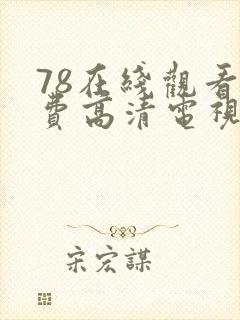 78在綫觀看
費高清電視
宋宏謀